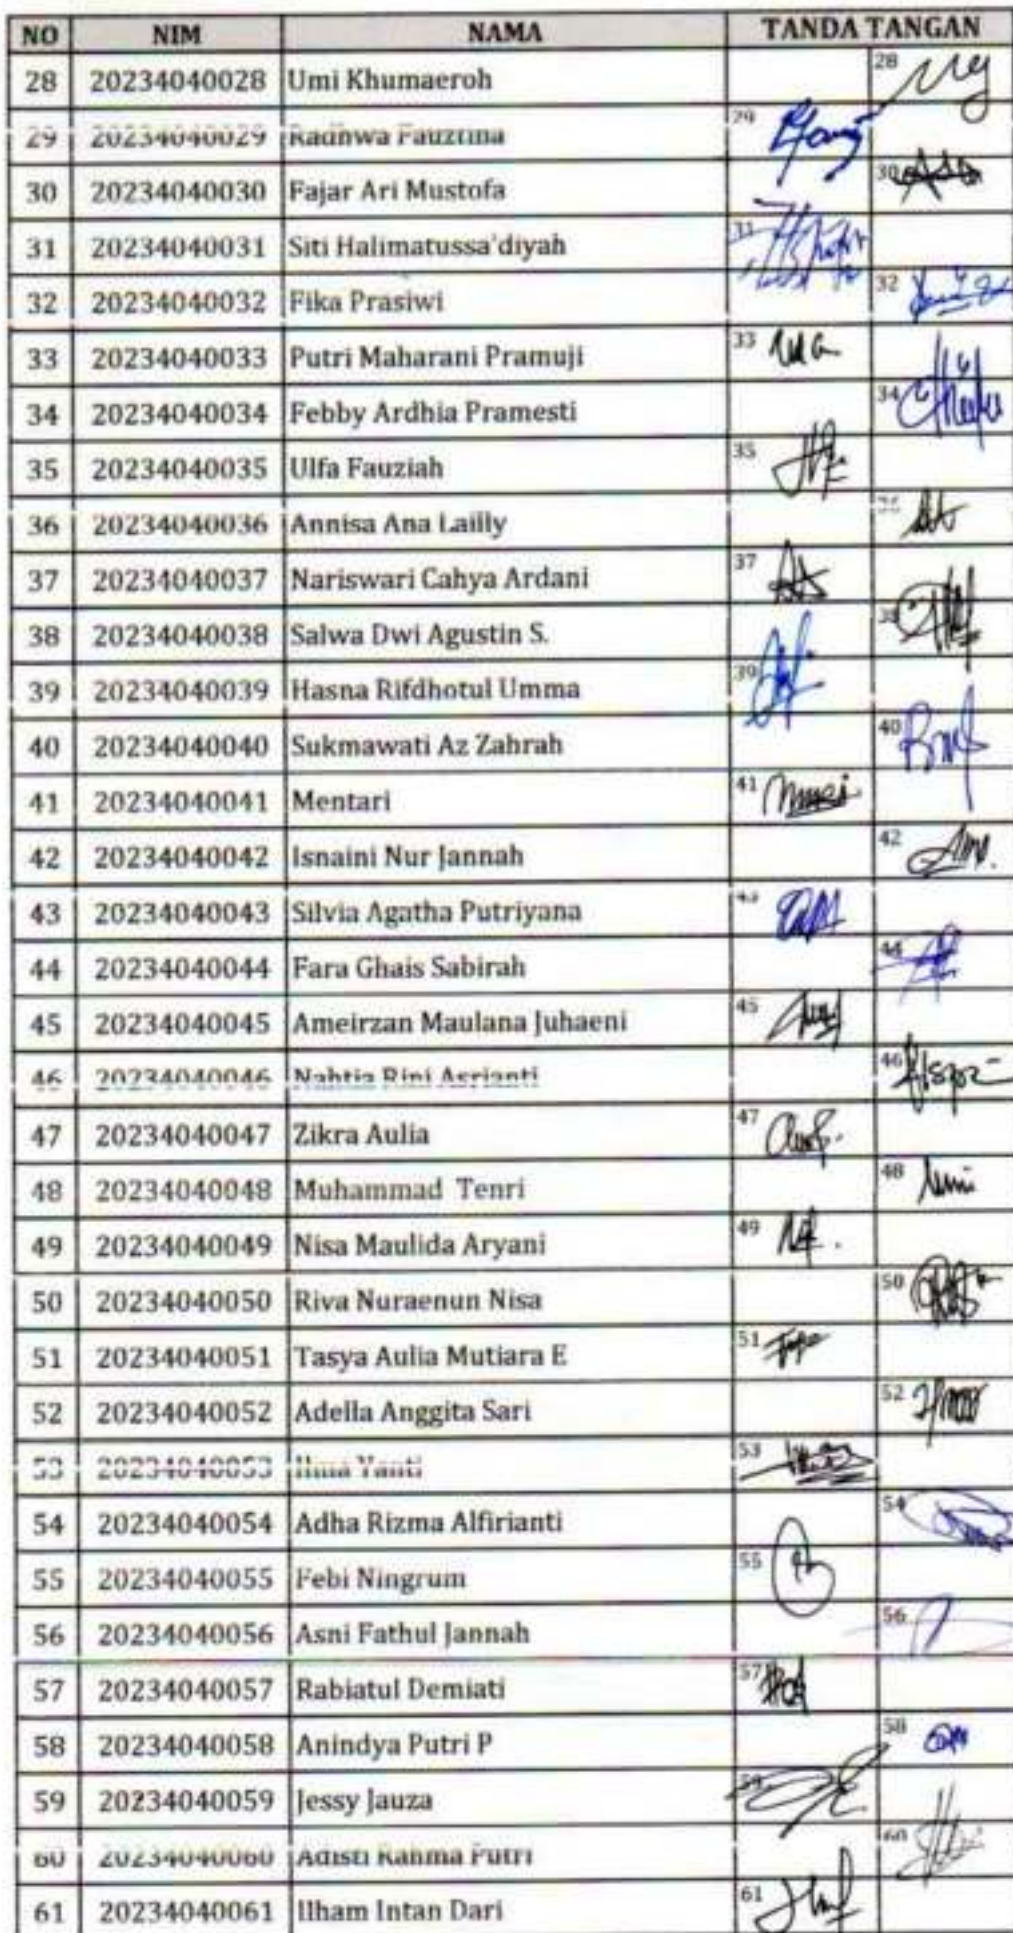 NO NIM NAMA TANDA TANGAN
28 20234040028 Umi Khumaeroh 28
29 20234040029 Radhwa Fauztina 29
30 20234040030 Fajar Ari Mustofa 30
31 20234040031 Siti Halimatussa'diyah 31
32 20234040032 Fika Prasiwi 32
33 20234040033 Putri Maharani Pramuji 33
34 20234040034 Febby Ardhia Pramesti 34
35 20234040035 Ulfa Fauziah 35
36 20234040036 Annisa Ana Lailly 36
37 20234040037 Nariswari Cahya Ardani 37
38 20234040038 Salwa Dwi Agustin S. 38
39 20234040039 Hasna Rifdhotul Umma 39
40 20234040040 Sukmawati Az Zahrah 40
41 20234040041 Mentari 41
42 20234040042 Isnaini Nur Jannah 42
43 20234040043 Silvia Agatha Putriyana 43
44 20234040044 Fara Ghais Sabirah 44
45 20234040045 Ameirzan Maulana Juhaeni 45
46 20234040046 Rini Asrianti 46
47 20234040047 Zikra Aulia 47
48 20234040048 Muhammad Tenri 48
49 20234040049 Nisa Maulida Aryani 49
50 20234040050 Riva Nuraenun Nisa 50
51 20234040051 Tasya Aulia Mutiara E 51
52 20234040052 Adella Anggita Sari 52
53 20234040053 Yanti 53
54 20234040054 Adha Rizma Alfirianti 54
55 20234040055 Febi Ningrum 55
56 20234040056 Asni Fathul Jannah 56
57 20234040057 Rabiatul Demiati 57
58 20234040058 Anindya Putri P 58
59 20234040059 Jessy Jauza 59
60 20234040060 Adisti Rahma Putri 60
61 20234040061 Ilham Intan Dari 61